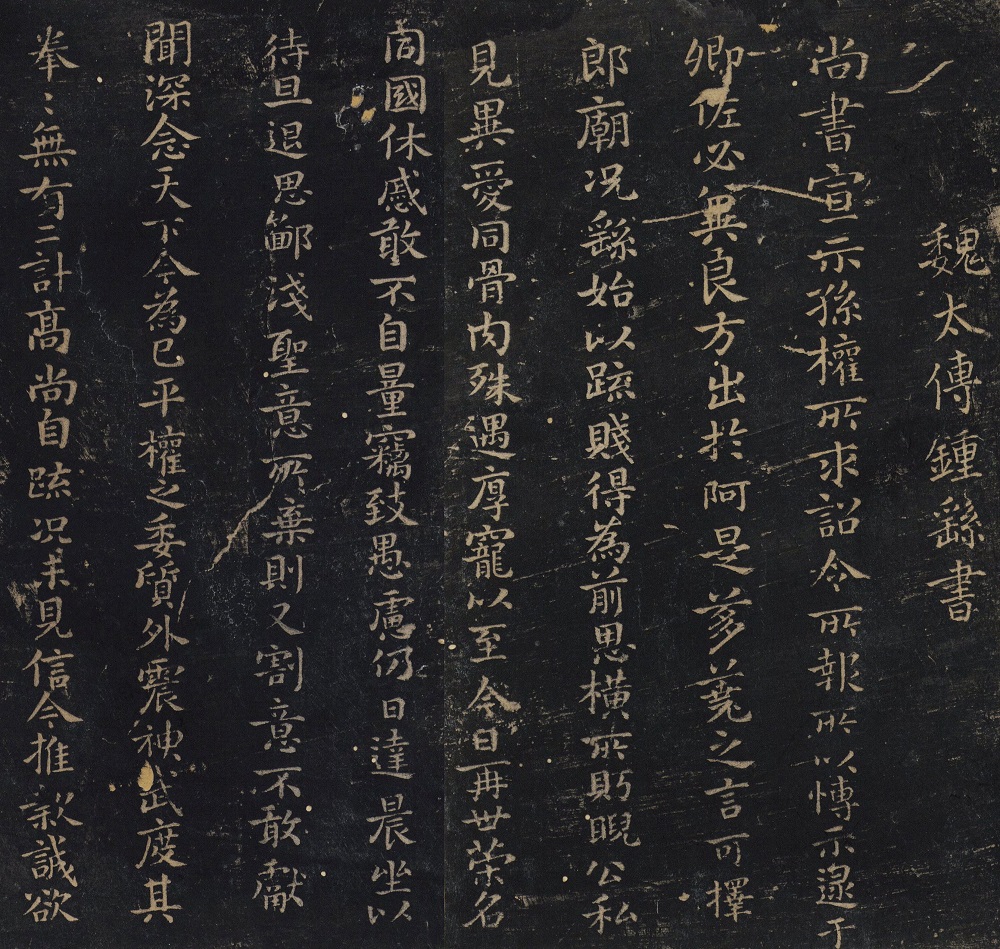 魏太傅鍾繇書
尚書宣示孫權所求詔令所報所以博示逮于
卿佐必異良方出於阿是芻蕘之言可擇
郎廟況繇始以疏賤得為前恩橫所眄睨公私
見異愛同骨肉殊遇厚寵以至今日再世榮名
同國休慼敢不自量竊致愚慮仍日達晨坐以
待旦退思鄙淺聖意所棄則又割意不敢獻
聞深念天下今為已平權之委質外震神武度其
拳〻無有二計高尚自疏況未見信今推款誠欲